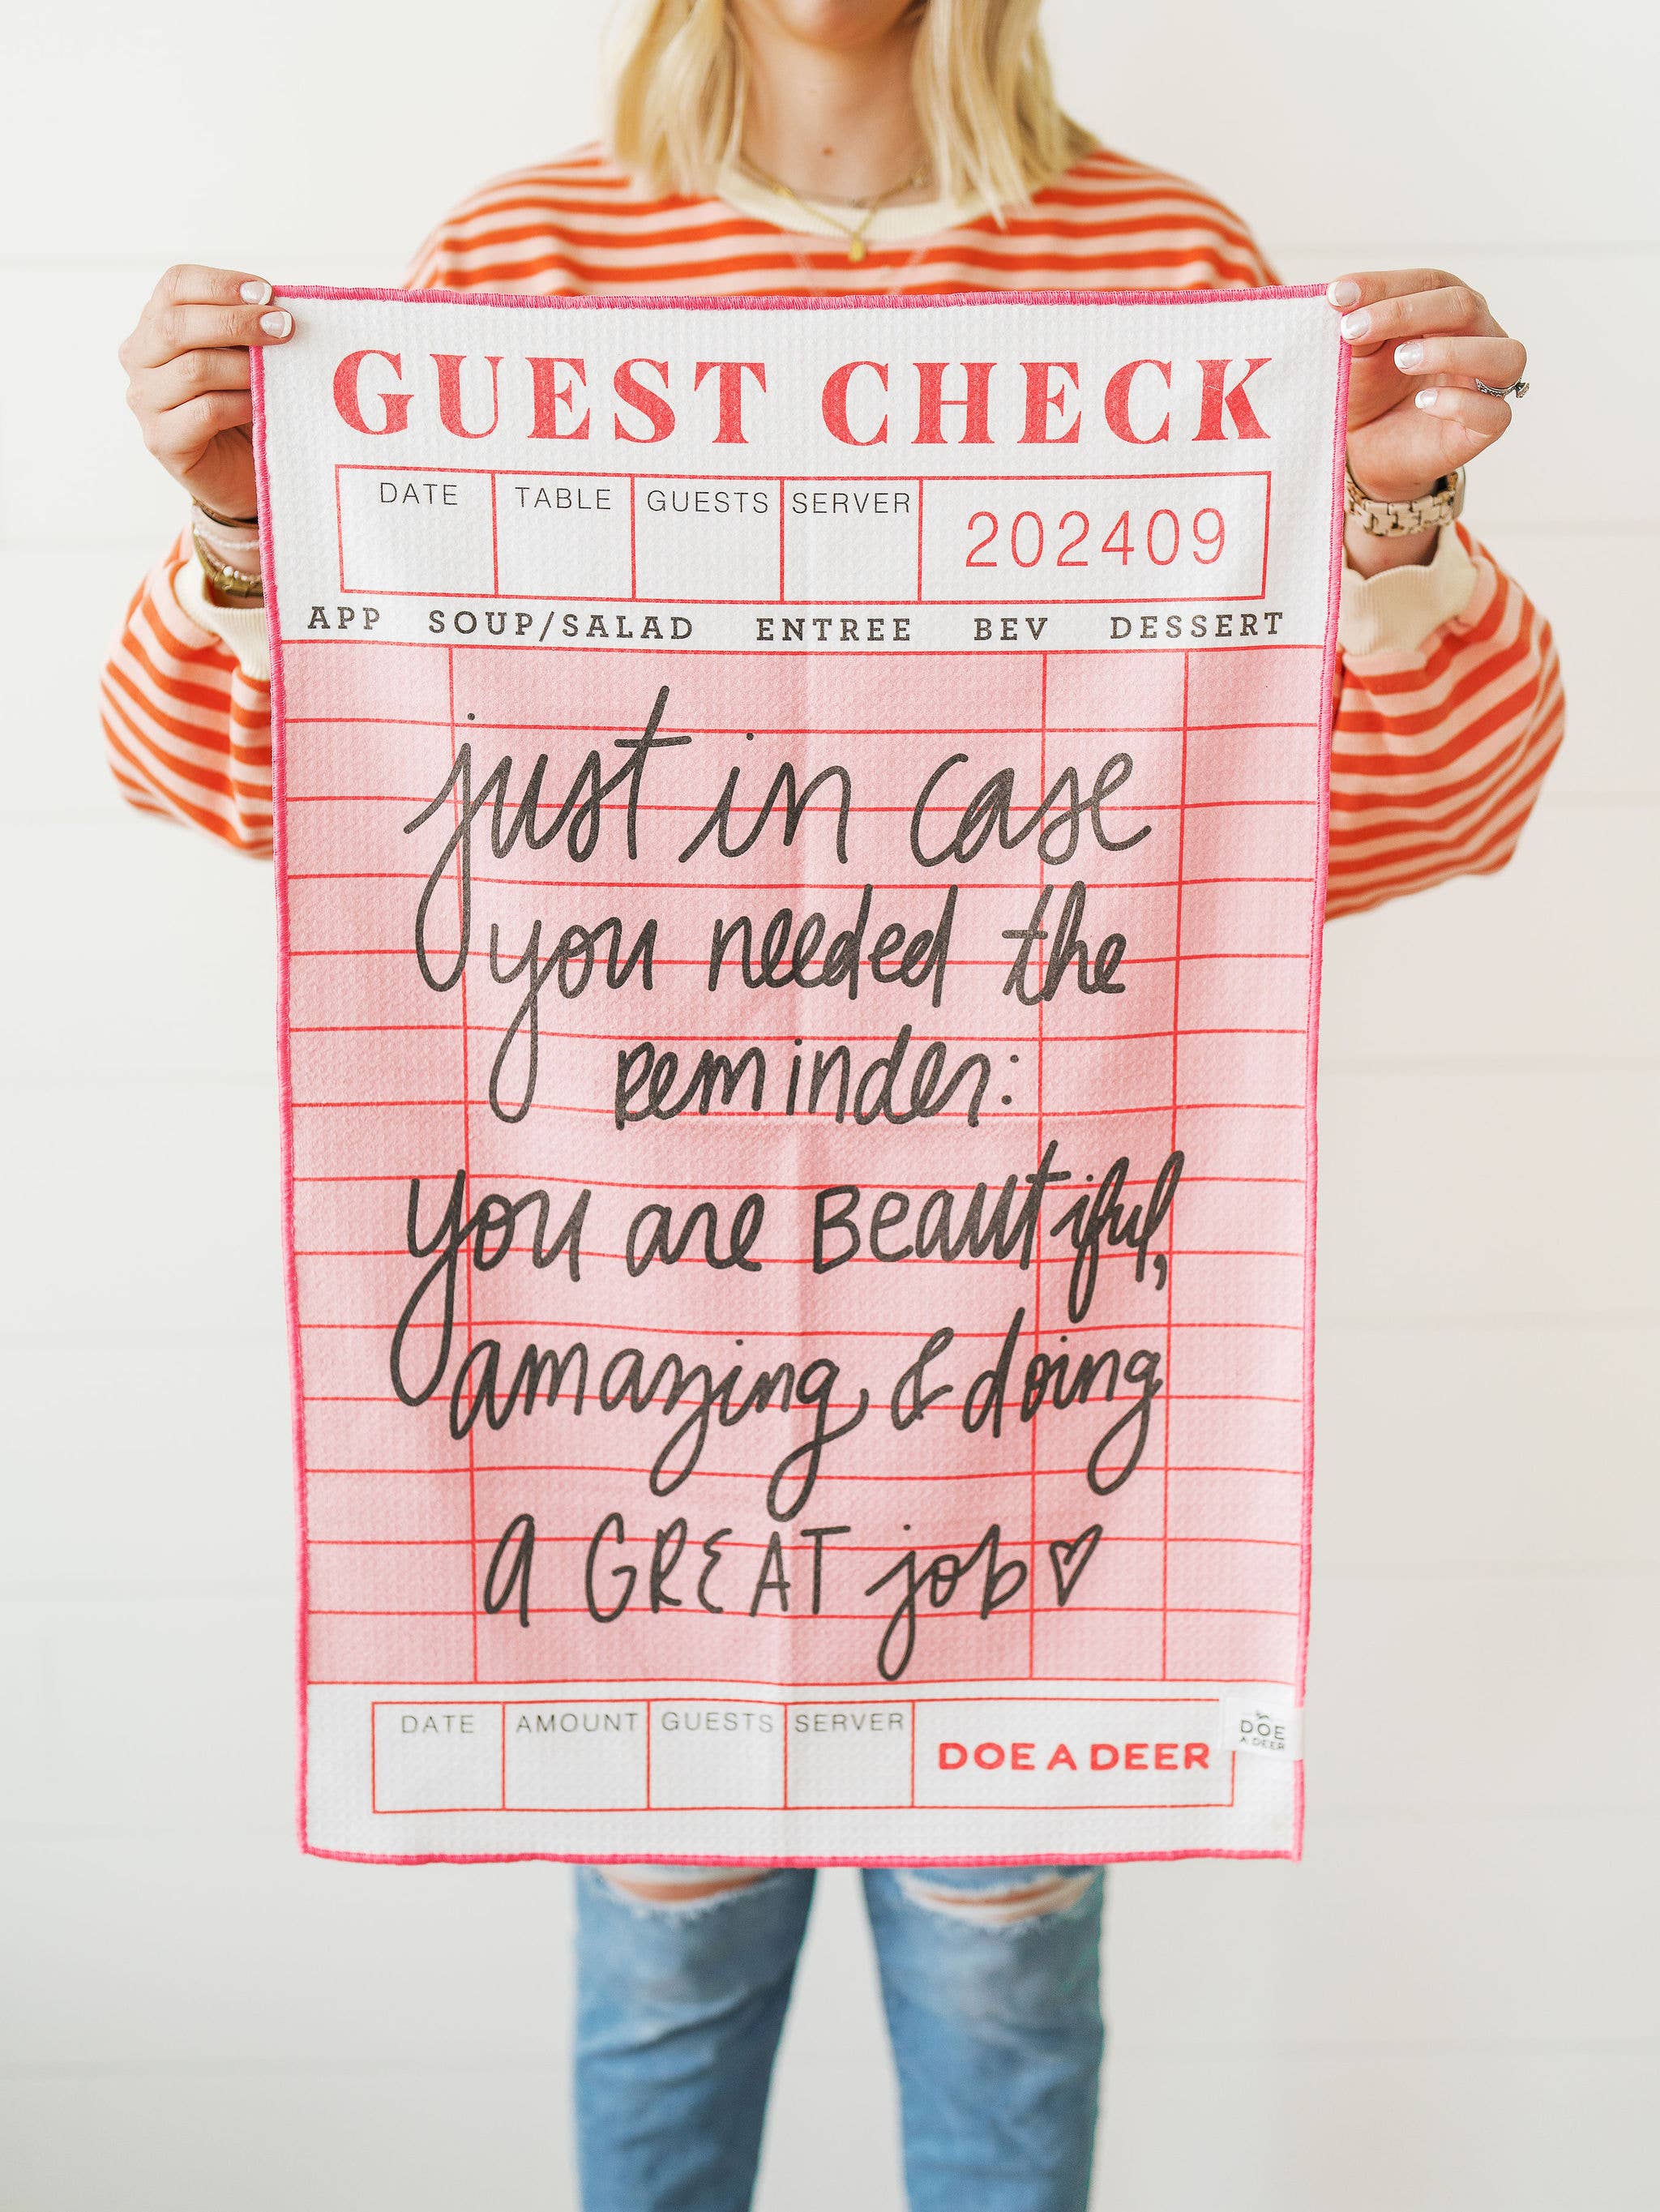 GUEST CHECK
DATE TABLE GUESTS SERVER 202409
APP SOUP/SALAD ENTREE BEV DESSERT
just in case
you needed the
reminder:
you are Beautiful,
amazing, & doing
a GREAT job♡
DATE AMOUNT GUESTS SERVER DOE A DEER
DOE
A DEER